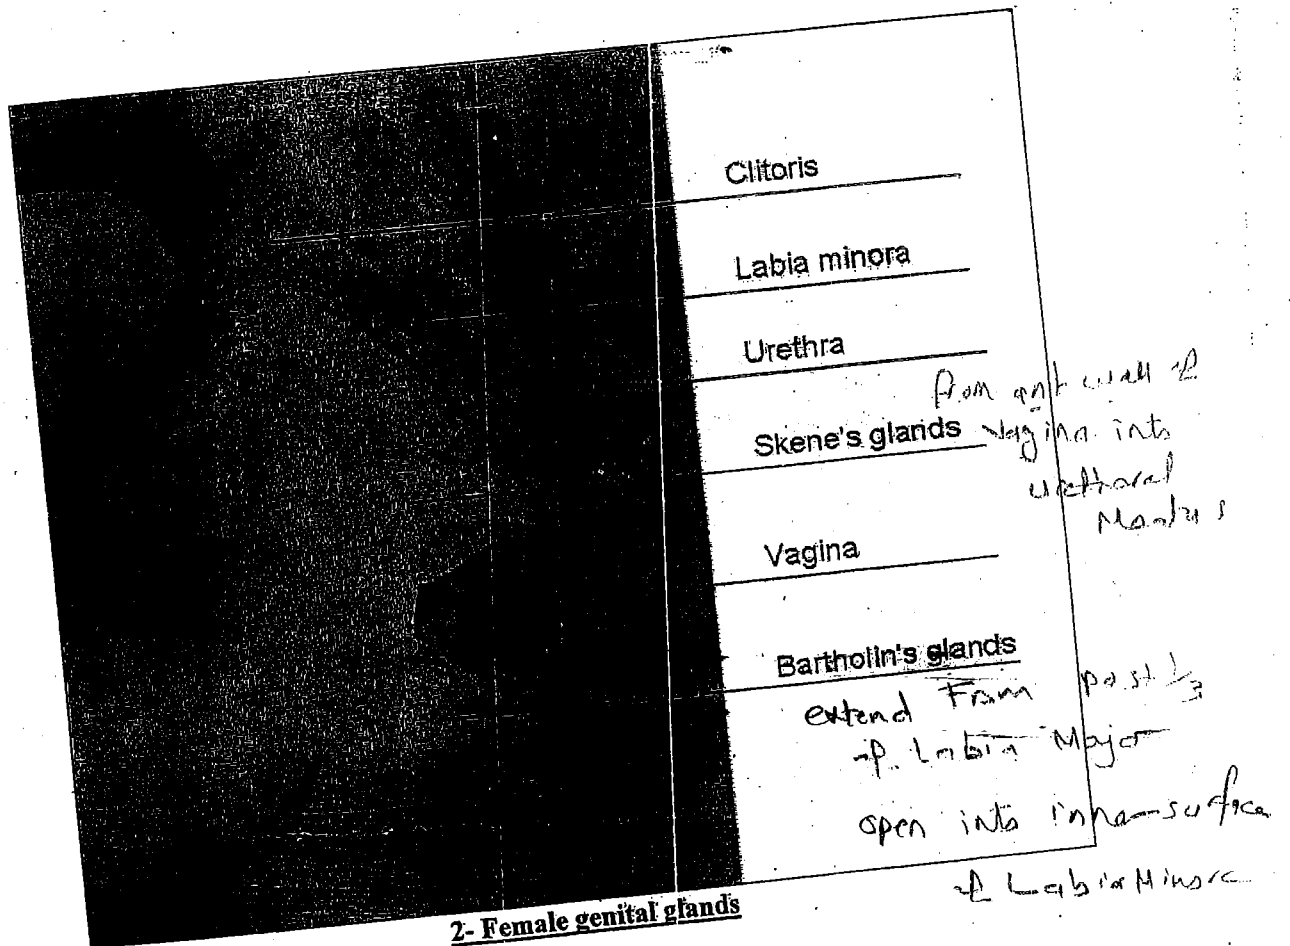 Clitoris
Labia minora
Urethra
from ant wall of
Skene's glands vagina into
urethral
Meatus
Vagina
Bartholin's glands
extend From post 1/3
of Labia Major
open into inner surface
of Labia Minora
2- Female genital glands